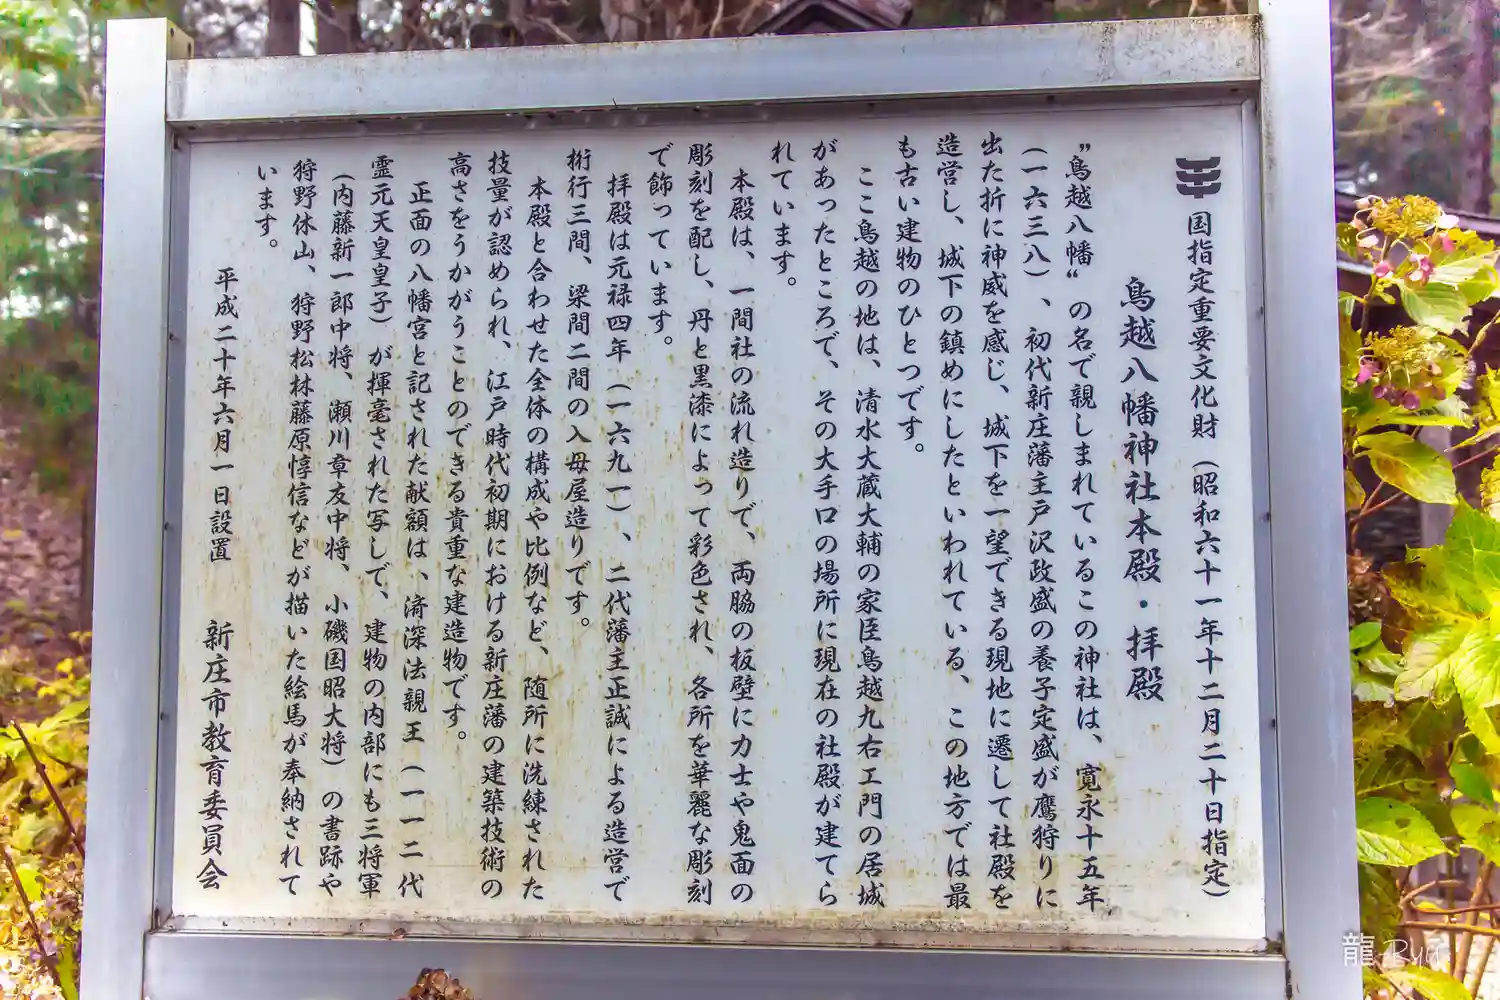 国指定重要文化財 (昭和六十一年十二月二十日指定)
鳥越八幡神社本殿・拝殿
"鳥越八幡" の名で親しまれているこの神社は、寛永十五年
(一六三八)、初代新庄藩主戸沢政盛の養子定盛が鷹狩りに
出た折に神威を感じ、城下を一望できる現地に遷して社殿を
造営し、城下の鎮めにしたといわれている、この地方では最
も古い建物のひとつです。
ここ鳥越の地は、清水大蔵大輔の家臣鳥越九右エ門の居城
があったところで、その大手口の場所に現在の社殿が建てら
れています。
本殿は、一間社の流れ造りで、両脇の板壁に力士や鬼面の
彫刻を配し、丹と黒漆によって彩色され、各所を華麗な彫刻
で飾っています。
拝殿は元禄四年(一六九一)、二代藩主正誠による造営で
桁行三間、梁間二間の入母屋造りです。
本殿と合わせた全体の構成や比例など、随所に洗練された
技量が認められ、江戸時代初期における新庄藩の建築技術の
高さをうかがうことのできる貴重な建造物です。
正面の八幡宮と記された献額は、済深法親王(一一二代
霊元天皇皇子)が揮毫された写しで、建物の内部にも三将軍
(内藤新一郎中将、瀬川章友中将、小磯国昭大将)の書跡や
狩野休山、狩野松林藤原惇信などが描いた絵馬が奉納されて
います。
平成二十年六月一日設置 新庄市教育委員会
龍 Ryu